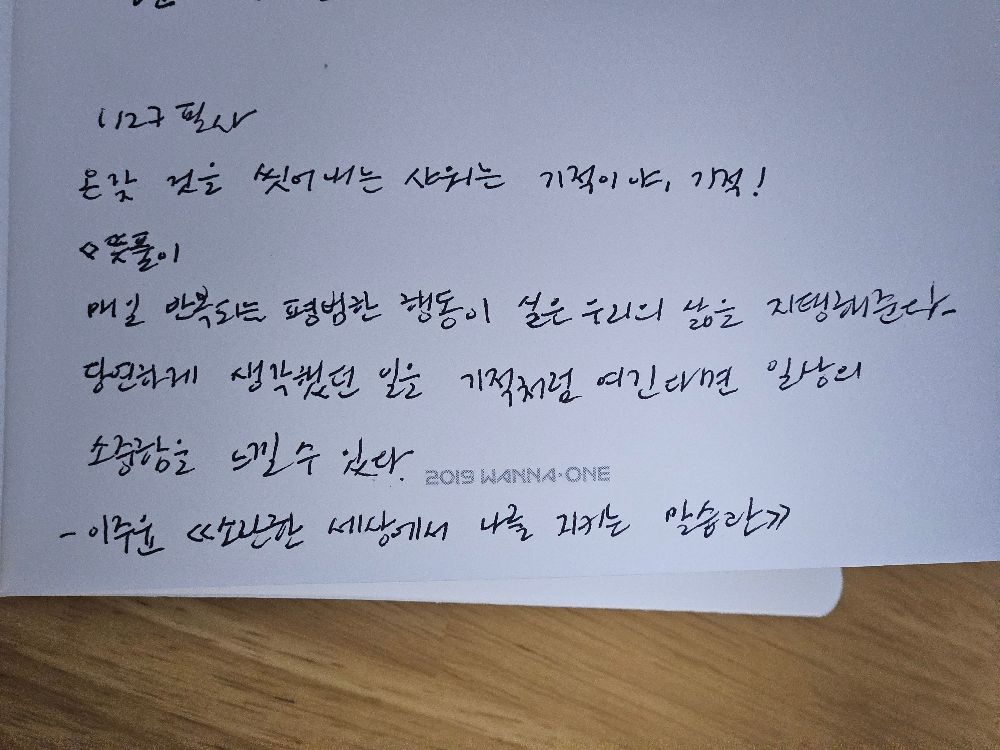 1127 필사
온갖 것을 씻어내는 샤워는 기적이야, 기적!
◇뜻풀이
매일 반복되는 평범한 행동이 실은 우리의 삶을 지탱해준다.
당연하게 생각했던 일을 기적처럼 여긴다면 일상의
소중함을 느낄 수 있다.
2019 WANNA·ONE
- 이주윤 《소란한 세상에서 나를 지키는 말습관》